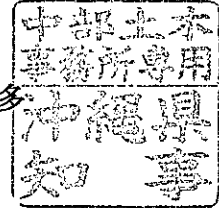 中部土木
事務所専用
沖縄県
知事
多